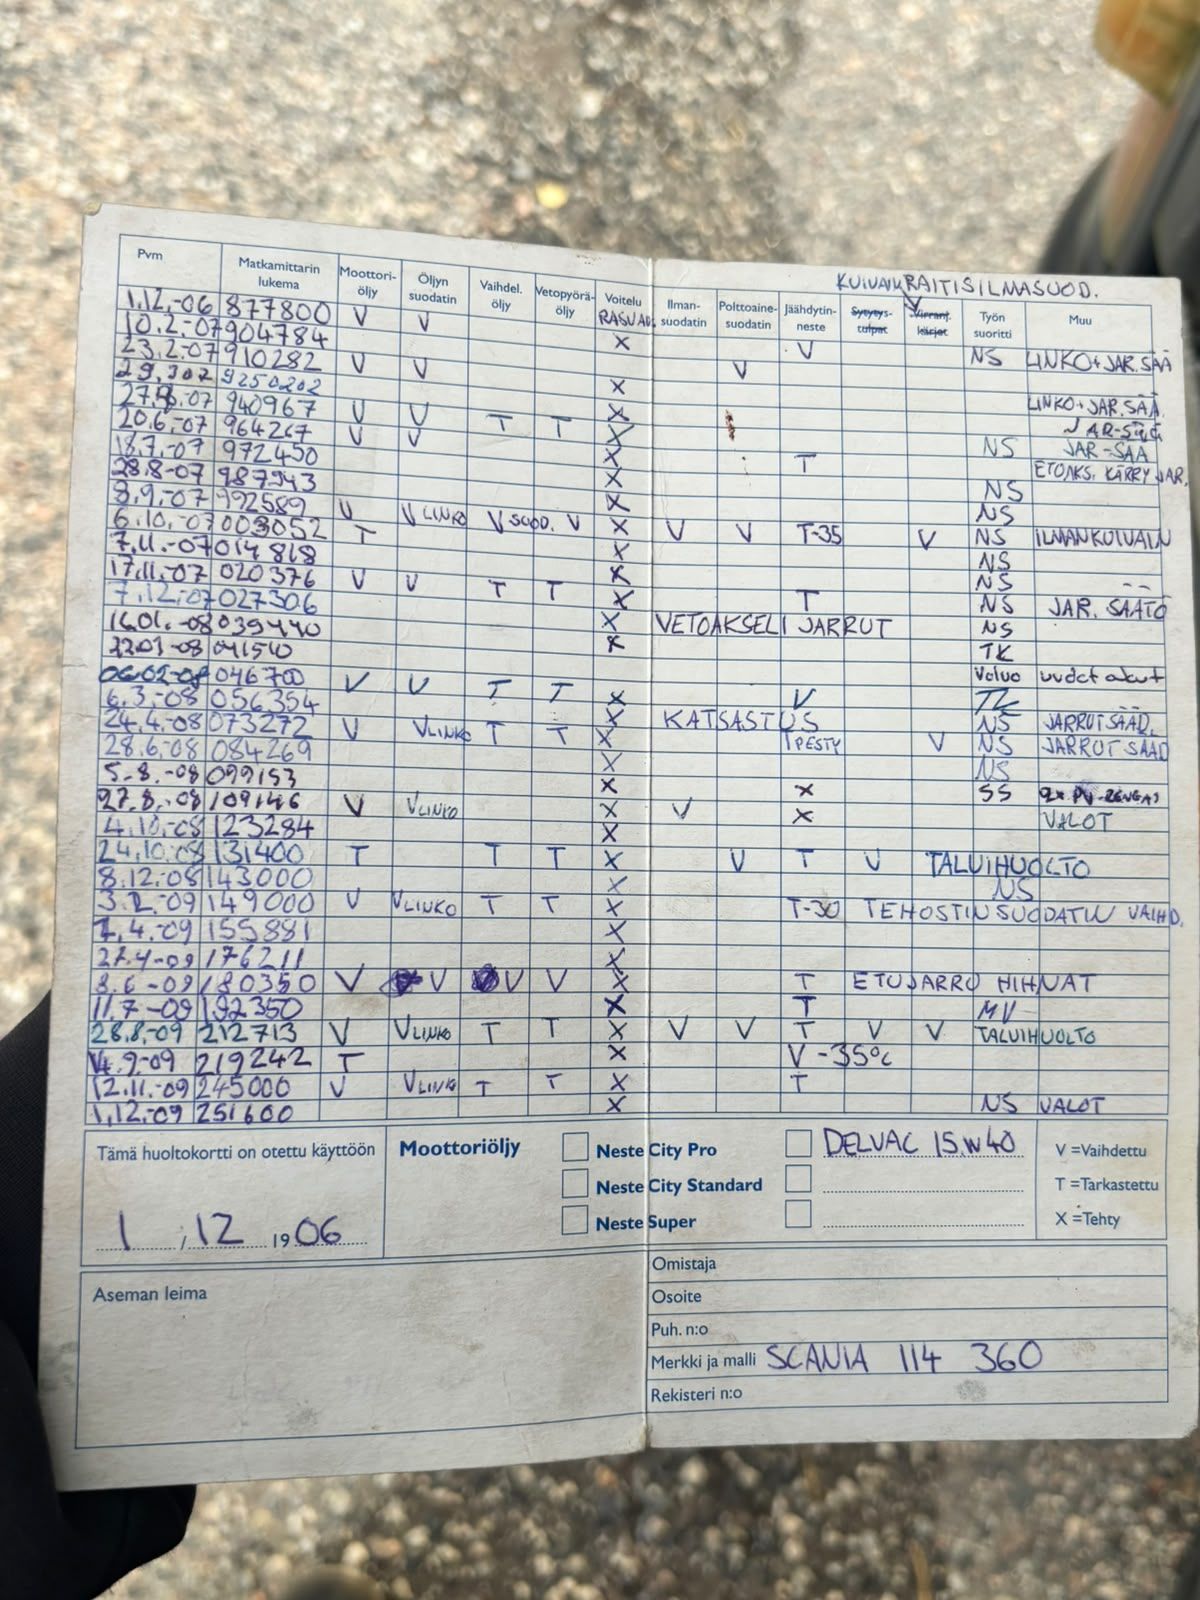 KUIVAIN RAITISILMASUOD.
Pvm Matkamittarin lukema Moottori-öljy Öljyn suodatin Vaihdel. öljy Vetopyörä-öljy Voitelu RASVAD. Ilman-suodatin Polttoaine-suodatin Jäähdytin-neste Sytytys-tulpat Virranj. kärjet Työn suoritti Muu
1.12.-06 877800 V V
10.2.-07 904784 X V NS LINKO+JAR.SÄÄ
23.2.-07 910282 V V V
29.307 9250202 X
940967 V V T T X LINKO+JAR.SÄÄ.
20.6.-07 964267 V V X JAR-SÄÄ
18.7.-07 972450 X T NS JAR-SÄÄ
28.8-07 987943 X ETUAKS. KÄRRY JAR.
8.9.-07 992589 V V LINKO V SUOD. V X NS
6.10.-07 003052 T X V V T-35 V NS ILMANKUIVAIN
7.11.-07 014818 X NS
17.11.-07 020376 V V T T X NS
7.12.-07 027306 X T NS JAR. SÄÄTÖ
16.01.-08 039440 X VETOAKSELI JARRUT NS
22.01-08 041540 X TK
06.02-08 046700 V V T T Volvo uudet akut
6.3.-08 056354 X V TK
24.4.-08 073272 V V LINKO T T X KATSASTUS NS JARRUTSÄÄD.
28.6.-08 084269 X PESTY V NS JARRUT SÄÄD
5.8.-08 099153 X NS
27.8.-08 109146 V V LINKO X V X SS
4.10.-08 123284 X X VALOT
24.10.-08 131400 T T T X V T V TALVIHUOLTO
8.12.-08 143000 X NS
3.2.-09 149000 V V LINKO T T X T-30 TEHOSTIN SUODATIN VAIHD.
1.4.-09 155881 X
27.4-09 176211 X
8.6-09 180350 V V V V X T ETUJARRU HIHNAT
11.7-09 192350 X T MV
28.8.-09 212713 V V LINKO T T X V V T V V TALVIHUOLTO
14.9-09 219242 T X V -35°C
12.11.-09 245000 V V LINKO T T X T
1.12.-09 251600 X NS VALOT
Tämä huoltokortti on otettu käyttöön
1 / 12 19 06
Moottoriöljy
Neste City Pro DELVAC 15W40
Neste City Standard
Neste Super
V =Vaihdettu
T =Tarkastettu
X =Tehty
Aseman leima
Omistaja
Osoite
Puh. n:o
Merkki ja malli SCANIA 114 360
Rekisteri n:o